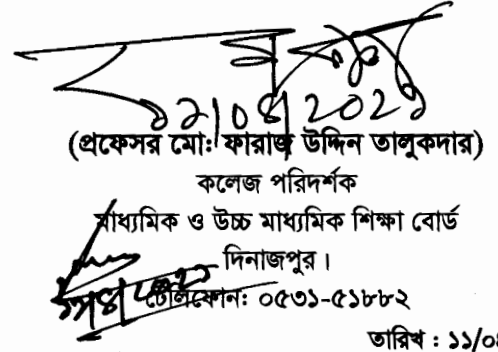 ১১/০৪/২০২১
(প্রফেসর মো: ফারাজ উদ্দিন তালুকদার)
কলেজ পরিদর্শক
মাধ্যমিক ও উচ্চ মাধ্যমিক শিক্ষা বোর্ড
দিনাজপুর।
টেলিফোন: ০৫৩১-৫১৮৮২
তারিখ : ১১/০৪